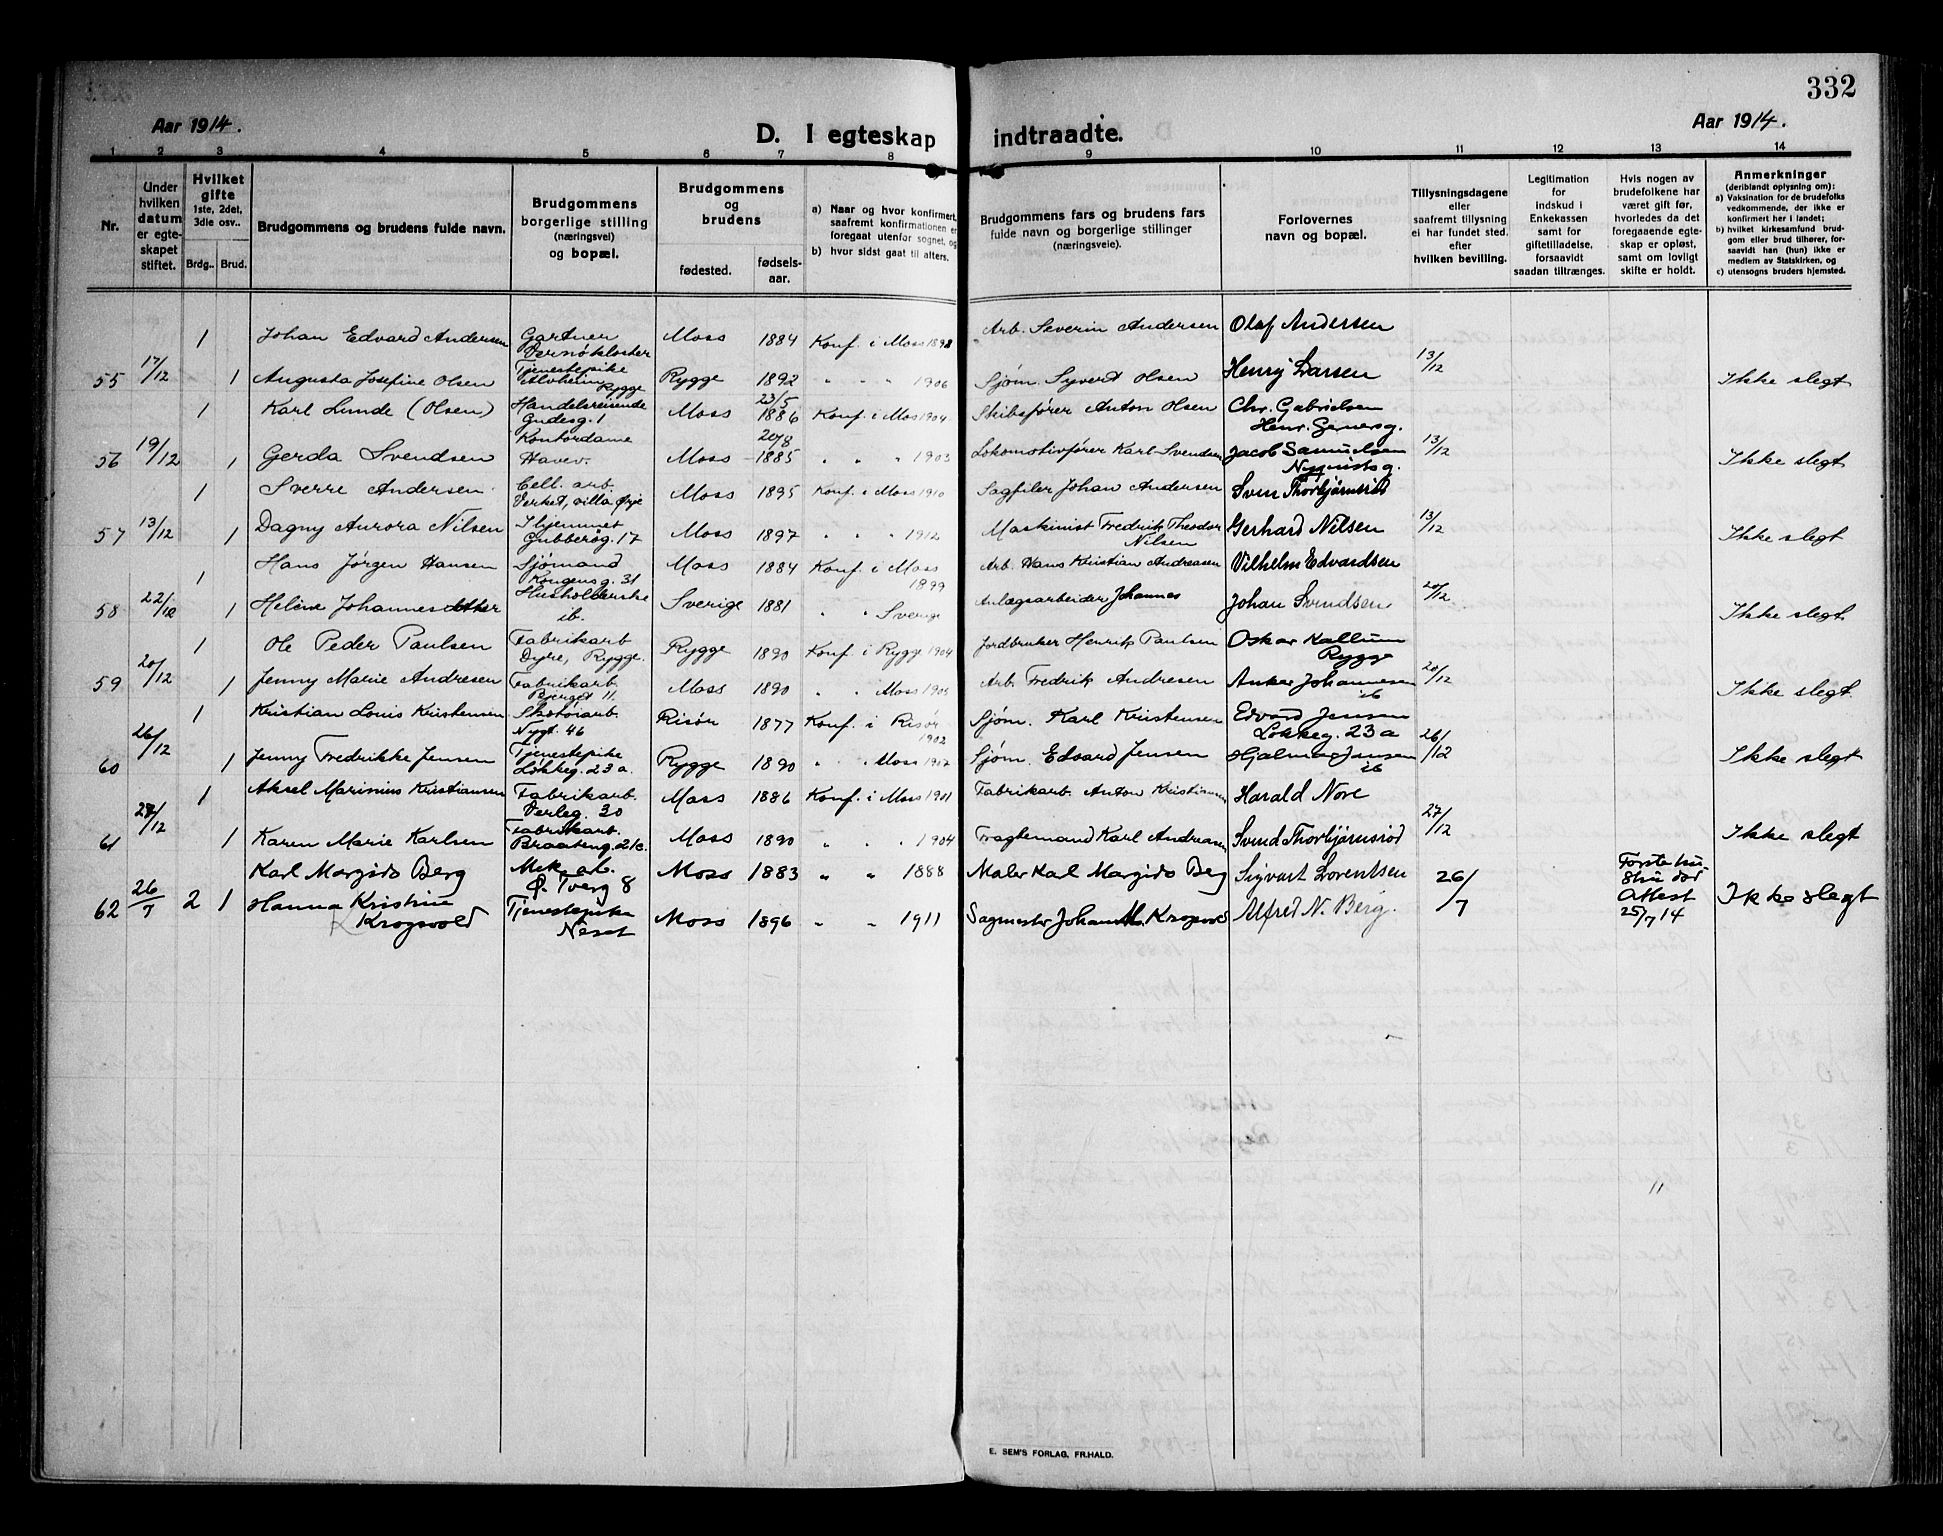 332
Aar 1914.
D. I egteskap indtraadte.
Aar 1914.
1 2 3 4 5 6 7 8 9 10 11 12 13 14
Nr.
Under hvilken datum er egteskapet stiftet.
Hvilket gifte 1ste, 2det, 3die osv..
Brdg.. Brud.
Brudgommens og brudens fulde navn.
Brudgommens borgerlige stilling (næringsvei) og bopæl.
Brudgommens og brudens
fødested. fødselsaar.
a) Naar og hvor konfirmert, saafremt konfirmationen er foregaat utenfor sognet, og
b) hvor sidst gaat til alters.
Brudgommens fars og brudens fars fulde navn og borgerlige stillinger (næringsveie).
Forlovernes navn og bopæl.
Tillysningsdagene eller saafremt tillysning ei har fundet sted, efter hvilken bevilling.
Legitimation for indskud i Enkekassen samt for giftetilladelse, forsaavidt saadan tiltrænges.
Hvis nogen av brudefolkene har været gift før, hvorledes da det foregaaende egteskap er opløst, samt om lovligt skifte er holdt.
Anmerkninger (deriblandt oplysning om):
a) Vaksination for de brudefolks vedkommende, der ikke er konfirmert her i landet;
b) hvilket kirkesamfund brudgom eller brud tilhører, forsaavidt han (hun) ikke er medlem av Statskirken, og
c) utensogns bruders hjemsted.
1 Johan Edvard Andersen Gartner Værnøkloster Moss 1884 Konf. i Moss 1898 Arb. Severin Andersen Olaf Andersen
55 17/12 1 Augusta Josefine Olsen Tjenestepike Alvheim Rygge Rygge 1892 " " " 1906 Sjøm. Syvert Olsen Henry Larsen 13/12 Ikke slegt
1 Karl Lunde (Olsen) Handelsreisende Gudesg. 1 Moss 23/5 1886 Konf. i Moss 1904 Skibsfører Anton Olsen Chr. Gabrielsen Henr. Gernersg.
56 19/12 1 Gerda Svendsen Kontordame Havev. Moss 20/8 1885 " " " 1903 Lokomotivfører Karl Svendsen Jacob Samuelsen Nyquistsg. 13/12 Ikke slegt
1 Sverre Andersen Cell. arb. Verket, villa Ørje Moss 1895 Konf. i Moss 1910 Sagfiler Johan Andersen Sven Thorbjørnsrød
57 13/12 1 Dagny Aurora Nilsen I hjemmet Gubberøg. 17 Moss 1897 " " " 1912 Maskinist Fredrik Theodor Nilsen Gerhard Nilsen 13/12 Ikke slegt
1 Hans Jørgen Hansen Sjømand Kongensg. 31 Moss 1884 Konf. i Moss 1899 Arb. Hans Kristian Andreasen Vilhelm Edvardsen
58 22/12 1 Heléne Johannesdotter Husholderske ib. Sverige 1881 " " Sverige Anlægsarbeider Johannes Johan Svendsen 20/12 Ikke slegt
1 Ole Peder Paulsen Fabrikarb Dyre, Rygge. Rygge 1890 Konf. i Rygge 1904 Jordbruker Henrik Paulsen Oskar Kallum Rygge
59 20/12 1 Jenny Marie Andresen Fabrikarb. Bjerget 11 Moss 1890 " " Moss 1905 Arb. Fredrik Andresen Anker Johannesen ib 20/12 Ikke slegt
1 Kristian Louis Kristensen Skotøiarb. Nygt. 46 Risør 1877 Konf. i Risør 1902 Sjøm. Karl Kristensen Edvard Jensen Løkkeg. 23 a
60 26/12 1 Jenny Fredrikke Jensen Tjenestepike Løkkeg. 23 a. Rygge 1890 " " Moss 1907 Sjøm. Edvard Jensen Hjalmar Jensen ib 26/12 Ikke slegt
1 Aksel Marinius Kristiansen Fabrikarb. Verleg. 30 Moss 1886 Konf. i Moss 1901 Fabrikarb. Anton Kristiansen Harald Nore
61 27/12 1 Karen Marie Karlsen Fabrikarb. Braateng. 2 k. Moss 1890 " " " 1904 Fragtemand Karl Andreasen Svend Thorbjørnsrød 27/12 Ikke slegt
Karl Margido Berg Mek. arb. Ø. Tverg 8 Moss 1883 " " 1888 Maler Karl Margido Berg Sigvart Lorentsen Første hustru død Attest 25/7 14
62 26/7 2 1 Hanna Kristine Krogsvold Tjenestepike Neset Moss 1896 " " 1911 Sagmester Johan M. Krogsvold Alfred N. Berg. 26/7 Ikke slegt
E. SEM'S FORLAG, FR.HALD.